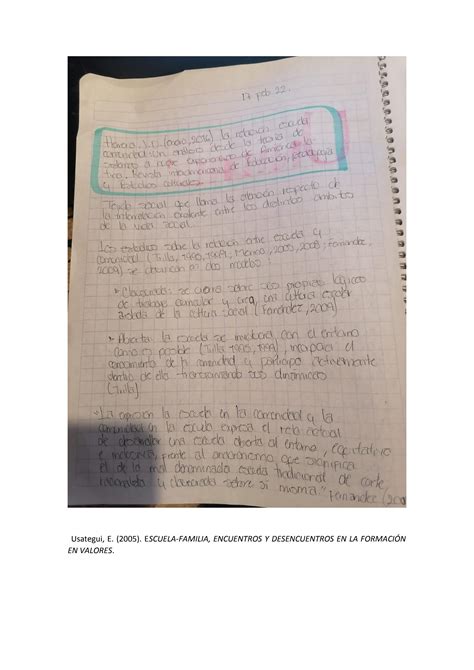 17 feb. 22.
(enero, 2014) la relación escuela
comunidad. Un análisis desde la teoría de
Revista interamericana de Educación, pedagogía
y Estudios culturales.
Tejido social que llama la atención respecto de
la interrelación existente entre los distintos ámbitos
de la vida social.
Los estudios sobre la relación entre escuela y
comunidad (Jullà, 1990, 1999, 2000, 2003; Fernández,
2009) se decantan por dos modelos:
se cierra sobre sus propias lógicas
de trabajo curricular y crea una cultura escolar
aislada de la cultura social (Fernández, 2009)
Abierta: la escuela se involucra con el entorno
como es posible (Jullà 1990, 1999), incorpora el
conocimiento de la comunidad y participa activamente
dentro de ella transformando sus dinámicas
(Jullà)
"La expresión la escuela en la comunidad y la
comunidad en la escuela expresa el reto actual
de desarrollar una escuela abierta al entorno,
e frente al anacronismo que significa
el de la mal denominada escuela tradicional de corte
y clausurada sobre si misma." Fernández (200
Usategui, E. (2005). ESCUELA-FAMILIA, ENCUENTROS Y DESENCUENTROS EN LA FORMACIÓN
EN VALORES.